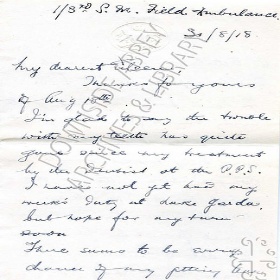 1/3rd S. M. Field Ambulance.
31/8/18.
My dearest
Thanks for yours
of Aug 18th.
I'm glad to say the trouble
with my teeth has quite
gone since my treatment
by the Dentist at the
I have not yet had my
week's duty at Lake Garda,
but hope for my turn
soon
There seems to be some
chance of my getting
DOWNSIDE ABBEY
ARCHIVES & LIBRARY